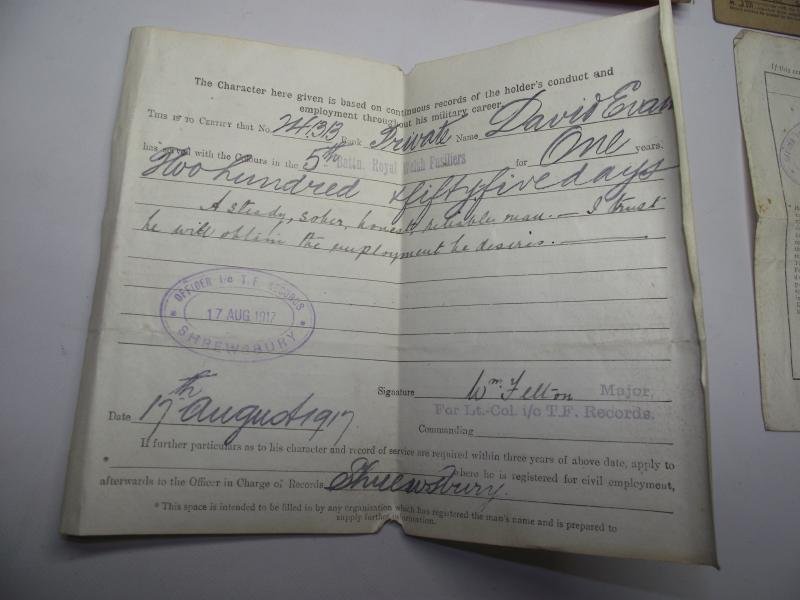 The Character here given is based on continuous records of the holder's conduct and
employment throughout his military career.
THIS IS TO CERTIFY that No. 2433 Rank Private Name David Evan
has served with the Colours in the 5th Battn. Royal Welsh Fusiliers for One years.
Two hundred & fifty five days
A steady, sober, honest, reliable man. — I trust
he will obtain the employment he desires. —
OFFICER i/c T.F. RECORDS
17 AUG 1917
SHREWSBURY
Signature Wm. Felton Major,
For Lt.-Col. i/c T.F. Records.
Date 17th August 1917
Commanding
If further particulars as to his character and record of service are required within three years of above date, apply to
* where he is registered for civil employment,
afterwards to the Officer in Charge of Records Shrewsbury.
* This space is intended to be filled in by any organization which has registered the man's name and is prepared to
supply further information.
If this